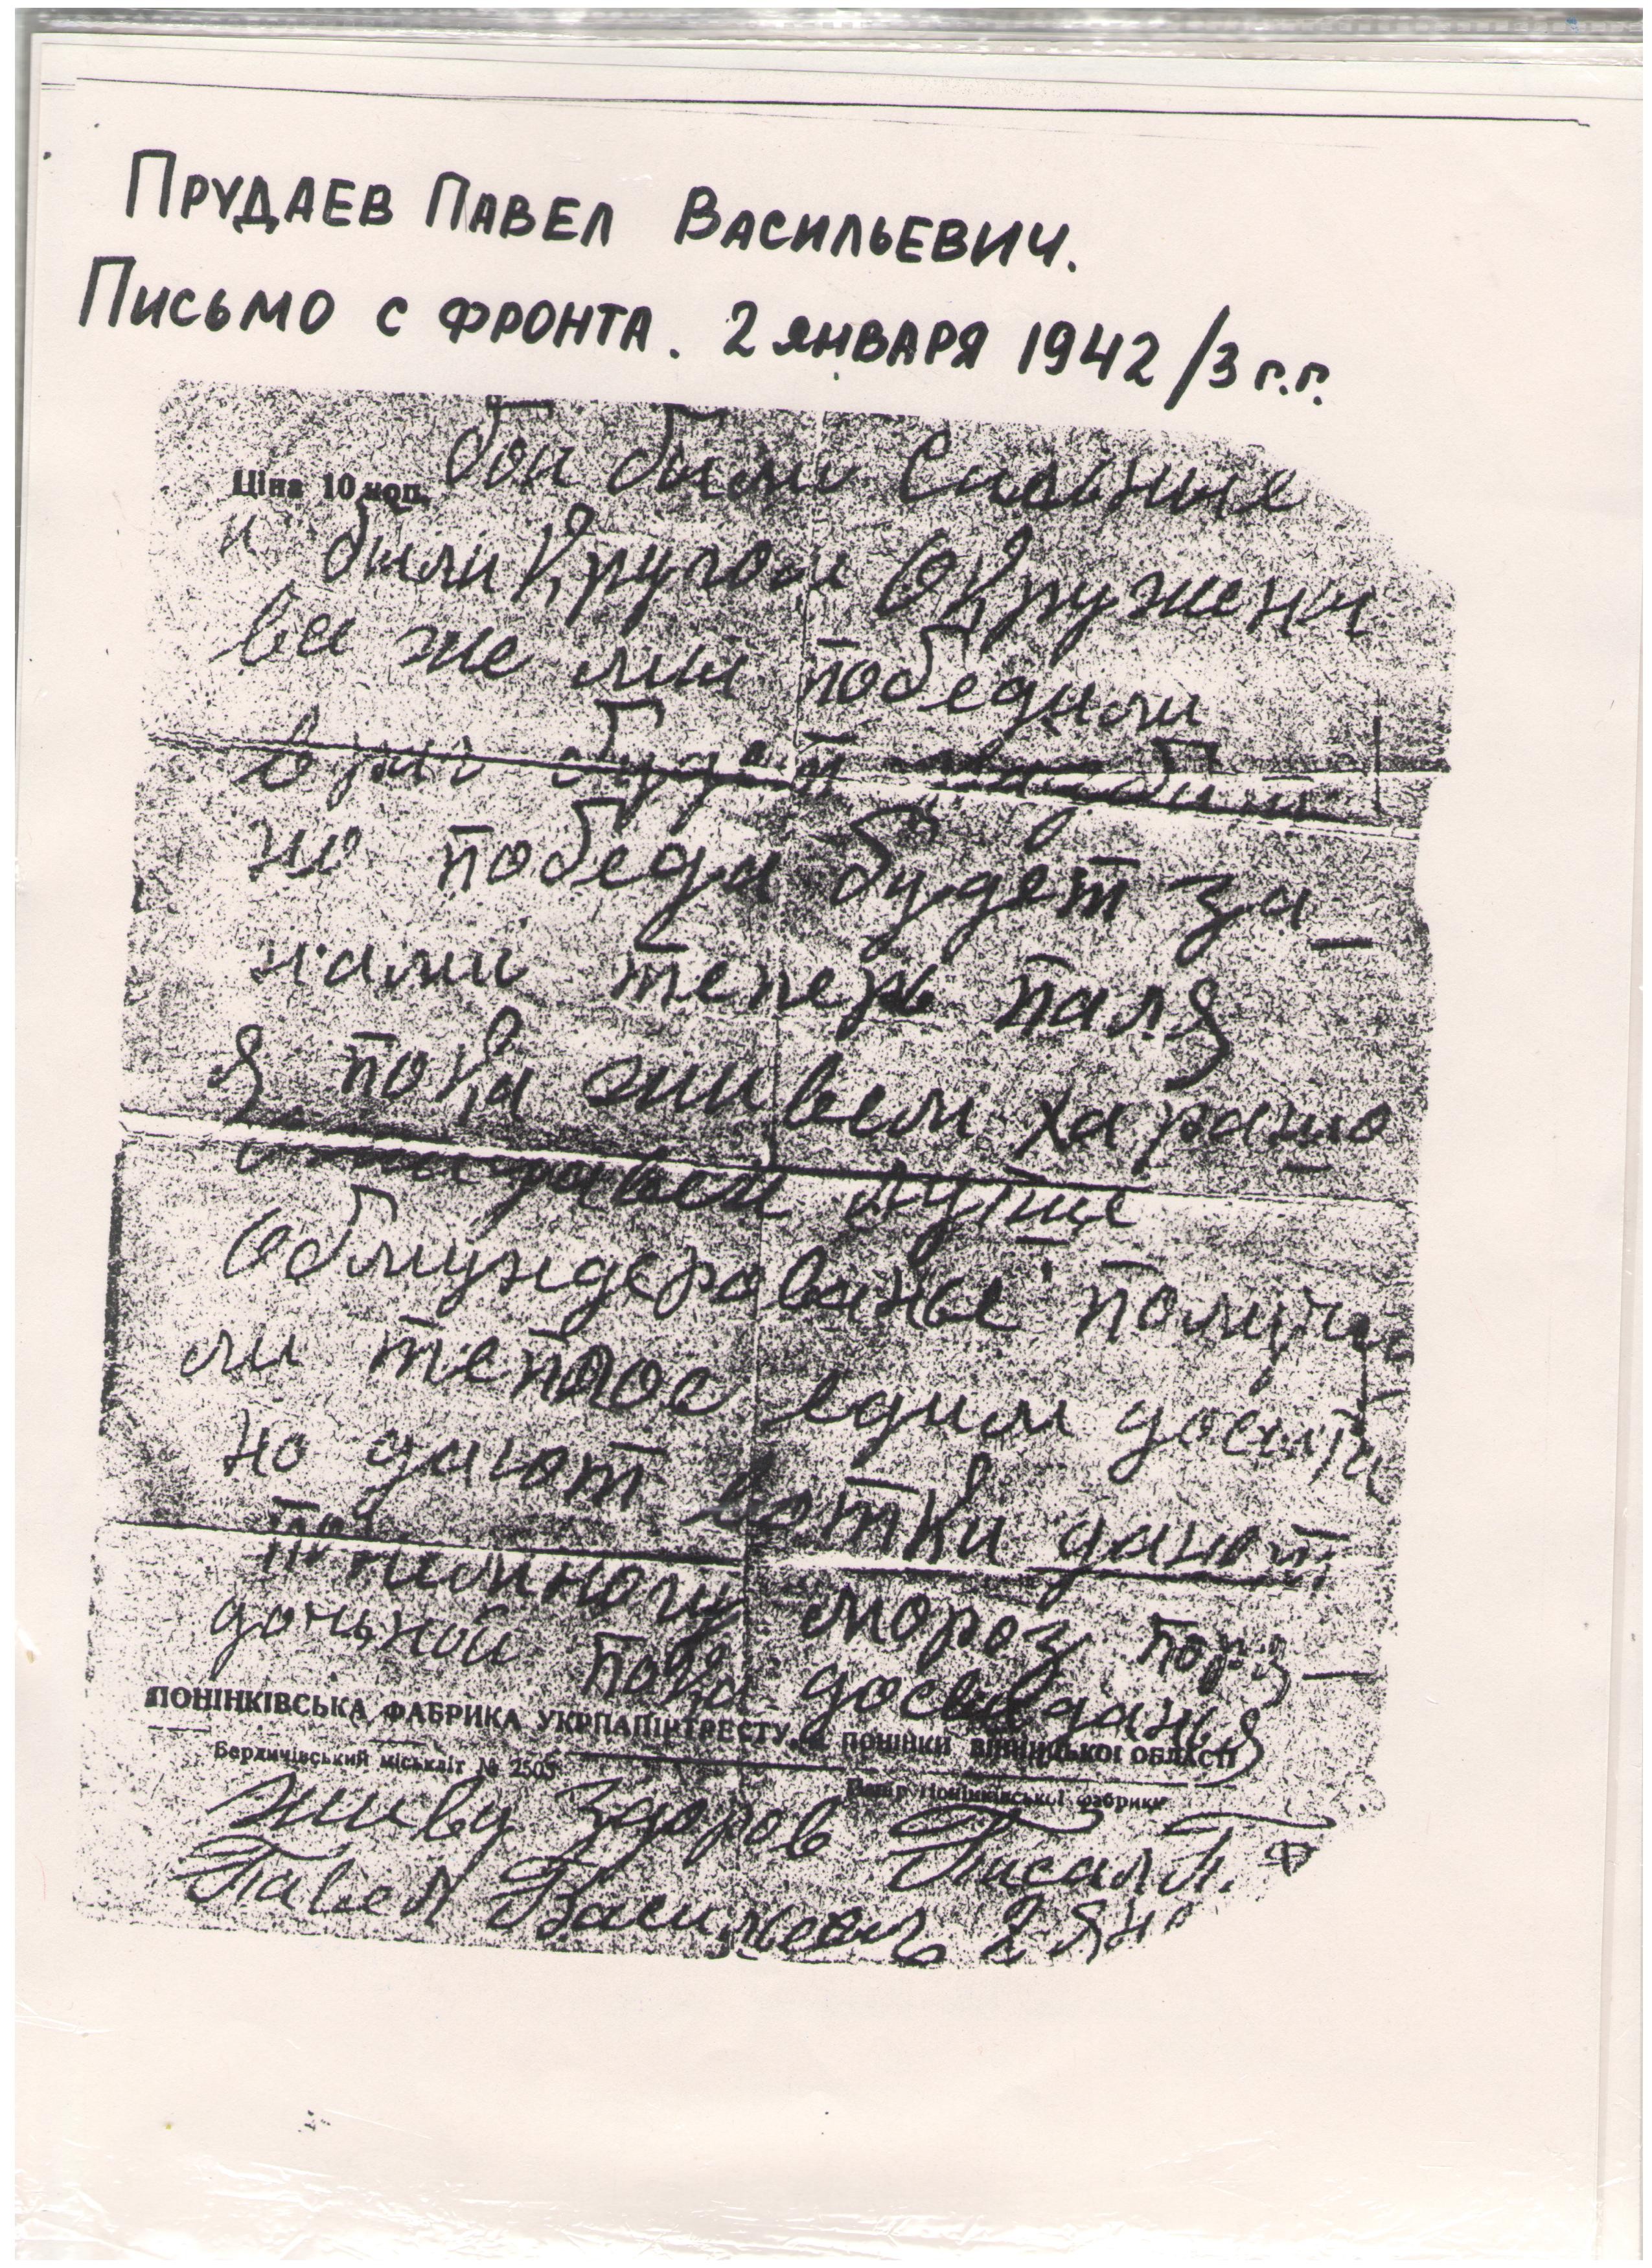 ПРУДАЕВ ПАВЕЛ ВАСИЛЬЕВИЧ.
ПИСЬМО С ФРОНТА. 2 ЯНВАРЯ 1942/3 г.г.
бои были Сильные
Ціна 10 коп.
и были Кругом Окружены
все же мы победили
враг будет
но победа будет за
нами теперь Паля
Я пока живем харашо
лучше
Обмундерованье получи
ли теплое едим досыта
но дают вотки дают
понемногу мороз поря
дочьной пока досвиданья
ПОНІНКІВСЬКА ФАБРИКА УКРПАПІРТРЕСТУ, ПОНІНКИ ВІННИЦЬКОЇ ОБЛАСТІ
Бердичівський міськліт № 2505
Папір Понінківської фабрики
живу здоров Писал П.
Павел Василевич 2 Янв